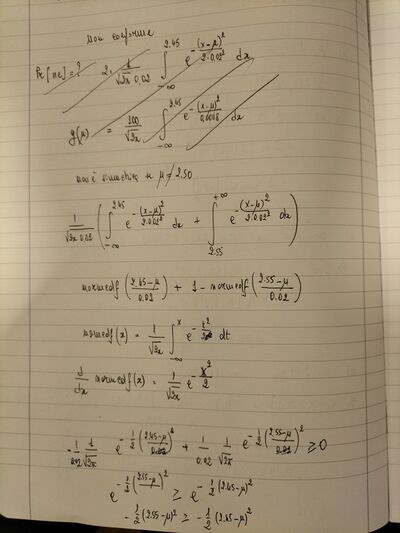 non conforme
Pr[nc] = ? 2. 1/(√2π 0.02) ∫_{-∞}^{2.45} e^{-(x-μ)²/(2·0.02²)} dx
g(μ) = 100/√2π ∫_{-∞}^{2.45} e^{-(x-μ)²/0.0008} dx
non è simmetrica se μ ≠ 2.50
1/(√2π 0.02) ( ∫_{-∞}^{2.45} e^{-(x-μ)²/(2·0.02²)} dx + ∫_{2.55}^{+∞} e^{-(x-μ)²/(2·0.02²)} dx )
normcdf((2.45-μ)/0.02) + 1 - normcdf((2.55-μ)/0.02)
normcdf(x) = 1/√2π ∫_{-∞}^{x} e^{-t²/2} dt
d/dx normcdf(x) = 1/√2π e^{-x²/2}
-1/0.02 1/√2π e^{-1/2((2.45-μ)/0.02)²} + 1/0.02 1/√2π e^{-1/2((2.55-μ)/0.02)²} ≥ 0
e^{-1/2(2.55-μ)²} ≥ e^{-1/2(2.45-μ)²}
-1/2(2.55-μ)² ≥ -1/2(2.45-μ)²